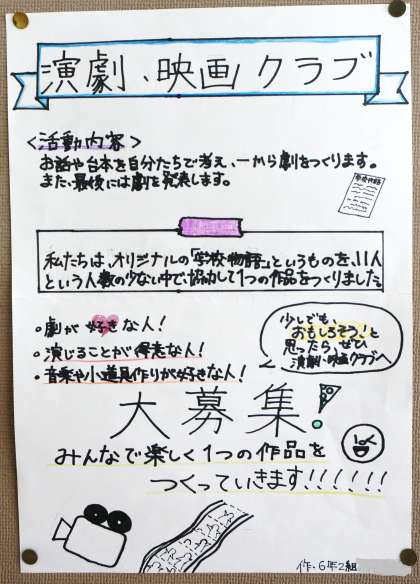 演劇、映画クラブ
<活動内容>
お話や台本を自分たちで考え、一から劇をつくります。
また、最後には劇を発表します。
学校物語
私たちは、オリジナルの「学校物語」というものを、11人
という人数の少ない中で、協力して1つの作品をつくりました。
・劇が好きな人!
・演じることが得意な人!
・音楽や小道具作りが好きな人!
少しでも、
おもしろそう!と
思ったら、ぜひ
演劇・映画クラブへ
大募集!
みんなで楽しく1つの作品を
つくっていきます!!!!!!
作・6年2組